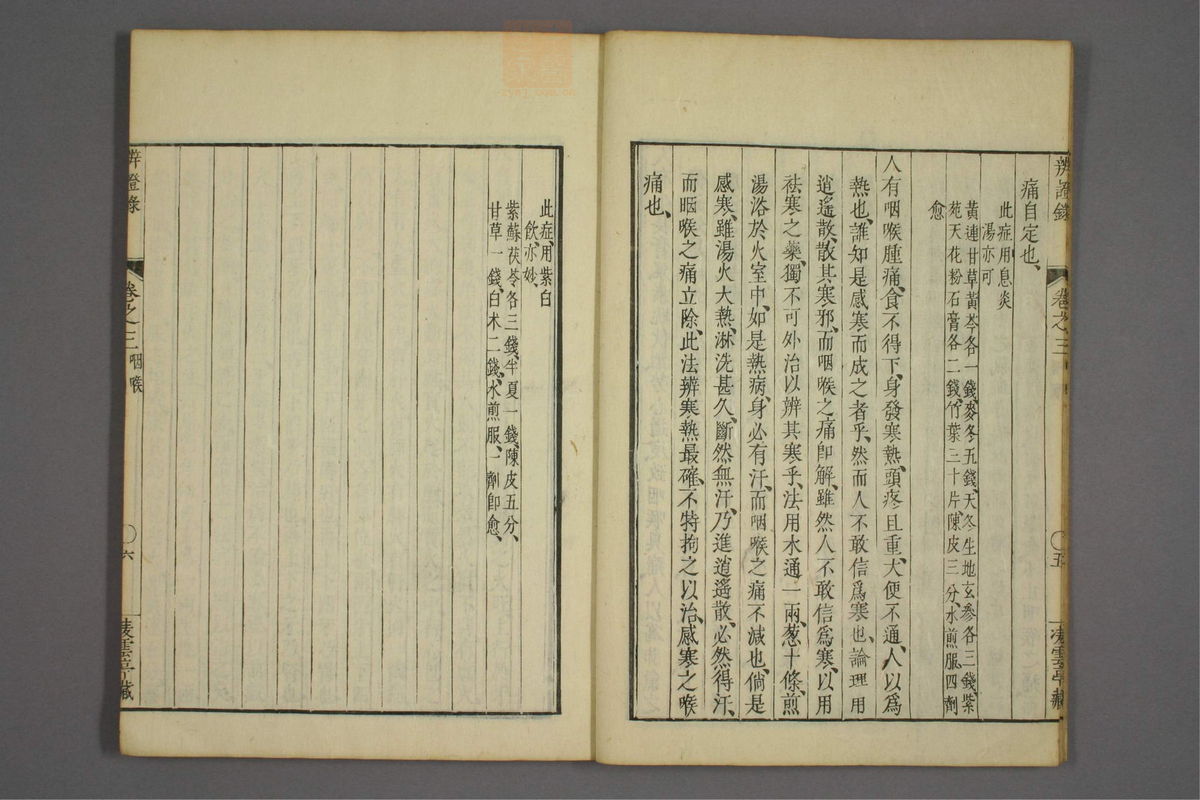 辨證錄
卷之三
五
凌雲亭藏
痛自定也、
此症用息炎
湯亦可
黃連甘草黃芩各一錢、麥冬五錢、天冬生地玄參各三錢、紫
苑天花粉石膏各二錢、竹葉三十片、陳皮三分、水煎服、四劑
愈
人有咽喉腫痛、食不得下、身發寒熱、頭疼且重、大便不通、人以爲
熱也、誰知是感寒而成之者乎、然而人不敢信爲寒也、論理用
逍遙散、散其寒邪、而咽喉之痛卽解、雖然人不敢信爲寒、以用
祛寒之藥、獨不可外治以辨其寒乎、法用水通一兩、葱十條、煎
湯浴於火室中、如是熱病、身必有汗、而咽喉之痛不減也、倘是
感寒、雖湯火大熱、淋洗甚久、斷然無汗、乃進逍遙散、必然得汗、
而咽喉之痛立除、此法辨寒熱最確、不特拘之以治感寒之喉
痛也、
此症、用紫白
飲、亦妙、
紫蘇茯苓各三錢、半夏一錢、陳皮五分、
甘草一錢、白术二錢、水煎服、一劑卽愈、
辨證錄
卷之三 咽喉
六
凌雲亭藏